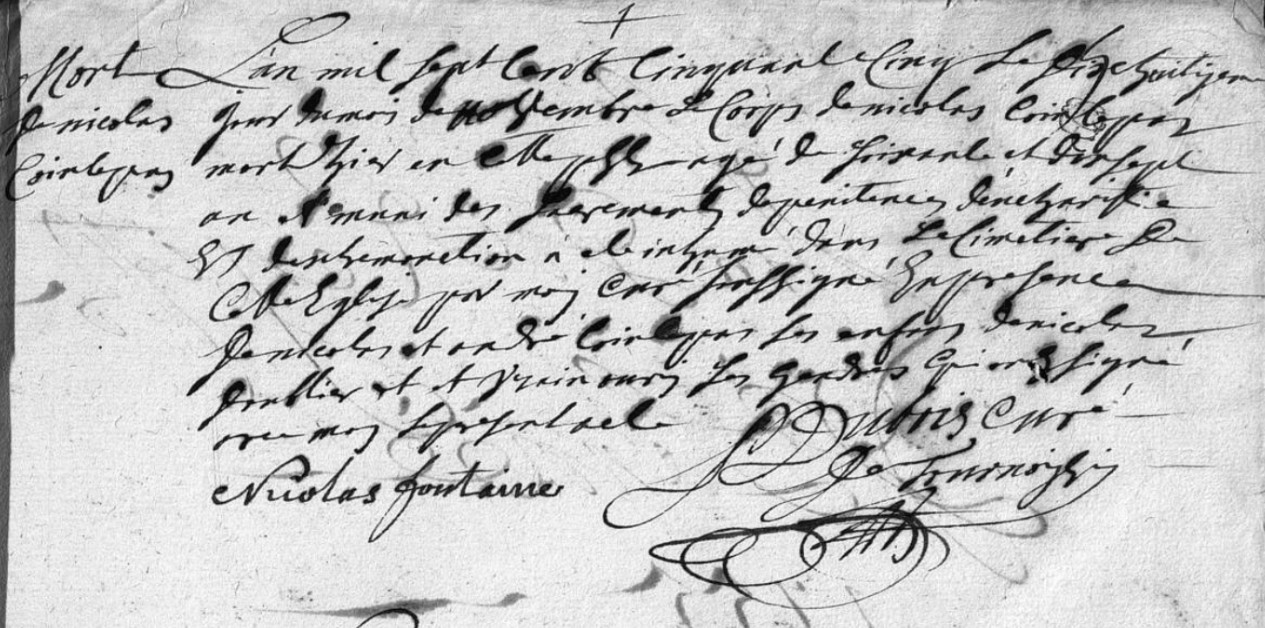 Mort
de nicolas
Cointepas
L'an mil sept Cent Cinquante Cinq Le dixe huitiyeme
jour du mois de novembre Le Corps de nicolas Cointepas
mort hier en cette psse agé de soixante et dixsept
an Et muni des sacrements de penitence deucharistie
Et dextremonction a ete inhumé dans Le Cimetiere de
Cette Eglise par moy Curé soussigné En presence
de nicolas et andré Cointepas ses enfans de nicolas
et et ses gendres qui ont signé
avec moy le present acte
Dubois Curé
de Tournoisis
Nicolas fontaine